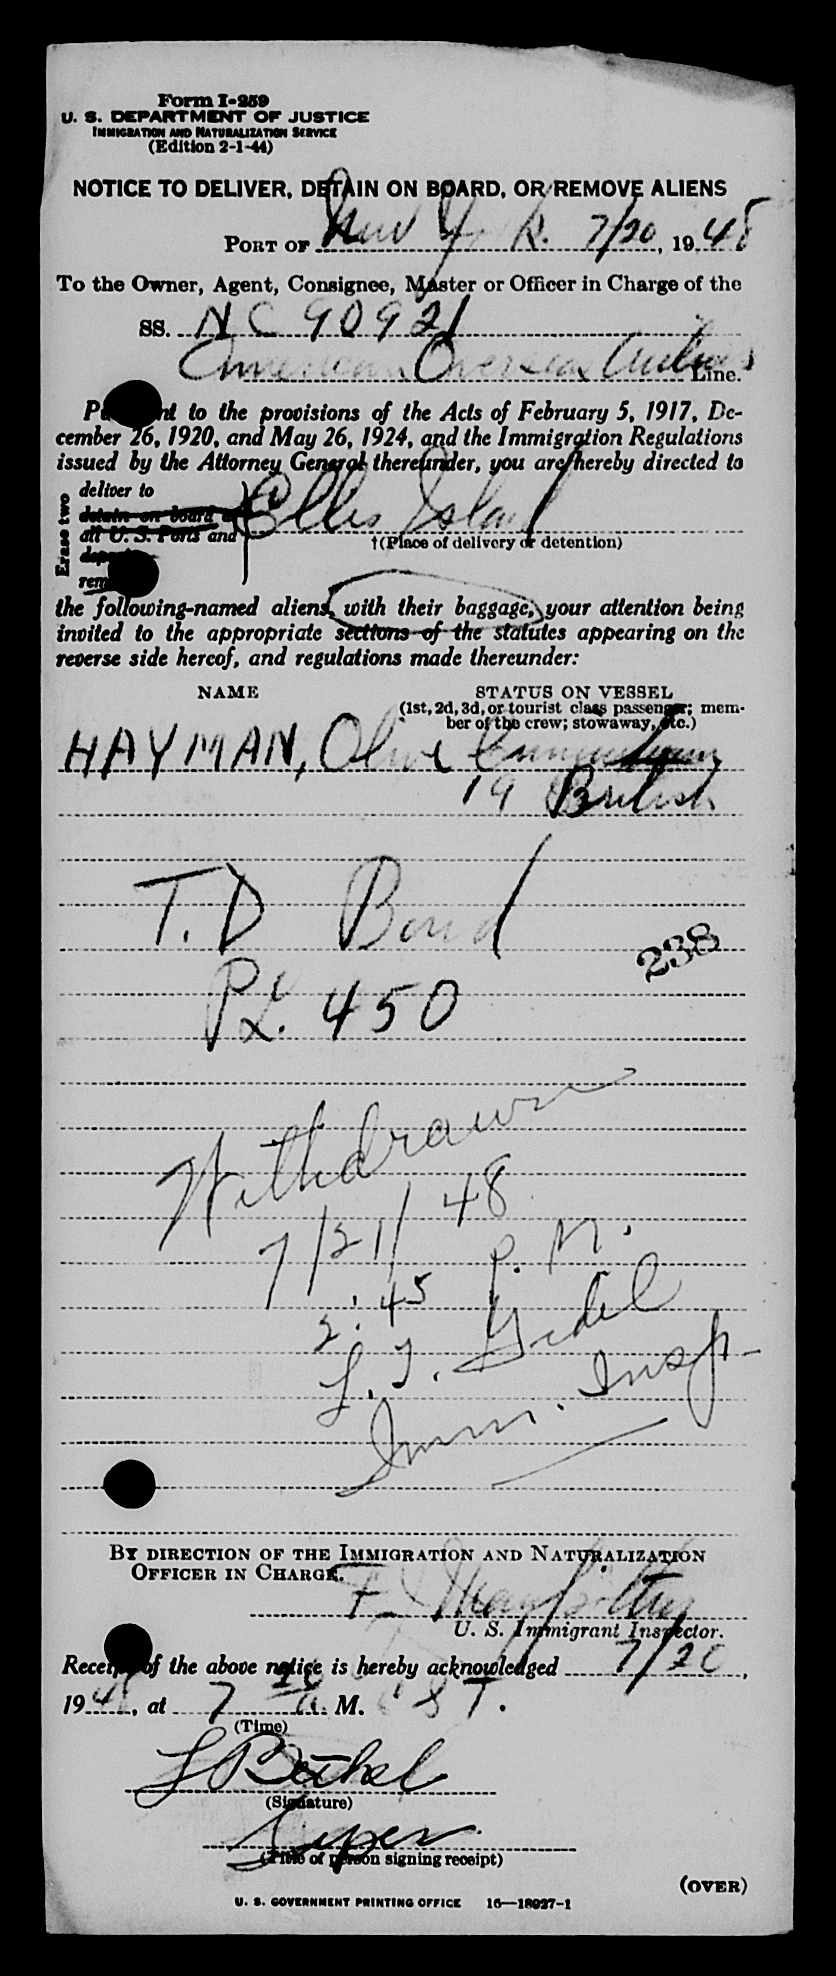 Form I-259
U. S. DEPARTMENT OF JUSTICE
IMMIGRATION AND NATURALIZATION SERVICE
(Edition 2-1-44)
NOTICE TO DELIVER, DETAIN ON BOARD, OR REMOVE ALIENS
PORT OF New York. 7/20, 1948
To the Owner, Agent, Consignee, Master or Officer in Charge of the
SS. NC 90921
American Overseas Airlines Line.
Pursuant to the provisions of the Acts of February 5, 1917, De-
cember 26, 1920, and May 26, 1924, and the Immigration Regulations
issued by the Attorney General thereunder, you are hereby directed to
Erase two
deliver to
detain on board at
all U. S. Ports and
Ellis Island
†(Place of delivery or detention)
the following-named aliens, with their baggage, your attention being
invited to the appropriate sections of the statutes appearing on the
reverse side hereof, and regulations made thereunder:
NAME STATUS ON VESSEL
(1st, 2d, 3d, or tourist class passenger; mem-
ber of the crew; stowaway, etc.)
HAYMAN, Olive
19 British
T.D Bond
238
Px. 450
Withdrawn
7/21/48
2:45 P.M.
Imm. Insp-
BY DIRECTION OF THE IMMIGRATION AND NATURALIZATION
OFFICER IN CHARGE.
F.
U. S. Immigrant Inspector.
Receipt of the above notice is hereby acknowledged 7/20,
1948, at 7 A. M.
(Time)
(Signature)
(Title of person signing receipt)
(OVER)
U. S. GOVERNMENT PRINTING OFFICE 16—18927-1